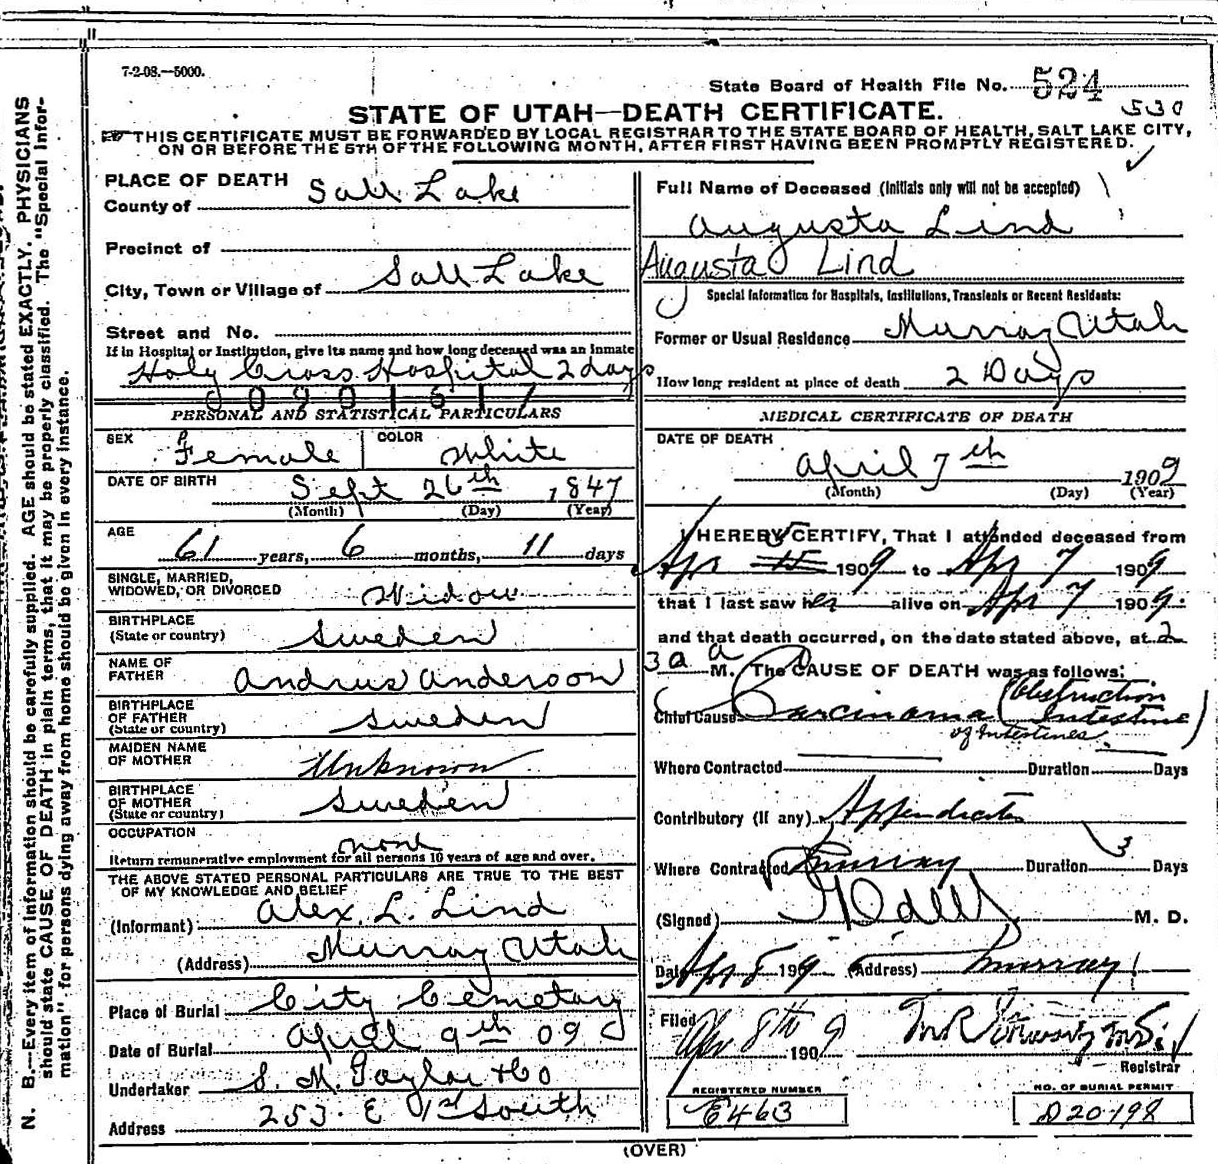 7-2-08.—5000.
State Board of Health File No. 524
530
STATE OF UTAH—DEATH CERTIFICATE.
THIS CERTIFICATE MUST BE FORWARDED BY LOCAL REGISTRAR TO THE STATE BOARD OF HEALTH, SALT LAKE CITY,
ON OR BEFORE THE 5TH OF THE FOLLOWING MONTH, AFTER FIRST HAVING BEEN PROMPTLY REGISTERED.
N. B.—Every item of information should be carefully supplied. AGE should be stated EXACTLY. PHYSICIANS
should state CAUSE OF DEATH in plain terms, that it may be properly classified. The "Special Infor-
mation" for persons dying away from home should be given in every instance.
PLACE OF DEATH
County of Salt Lake
Precinct of
City, Town or Village of Salt Lake
Street and No.
If in Hospital or Institution, give its name and how long deceased was an inmate
Holy Cross Hospital 2 days
0901617
PERSONAL AND STATISTICAL PARTICULARS
SEX Female COLOR White
DATE OF BIRTH Sept 26th 1847
(Month) (Day) (Year)
AGE 61 years, 6 months, 11 days
SINGLE, MARRIED,
WIDOWED, OR DIVORCED Widow
BIRTHPLACE
(State or country) Sweden
NAME OF
FATHER Andrus Anderson
BIRTHPLACE
OF FATHER
(State or country) Sweden
MAIDEN NAME
OF MOTHER Unknown
BIRTHPLACE
OF MOTHER
(State or country) Sweden
OCCUPATION none
Return remunerative employment for all persons 10 years of age and over.
THE ABOVE STATED PERSONAL PARTICULARS ARE TRUE TO THE BEST
OF MY KNOWLEDGE AND BELIEF
(Informant) Alex. L. Lind
(Address) Murray Utah
Place of Burial City Cemetary
Date of Burial April 9th 09
Undertaker S. M. Taylor & Co
Address 253 E 1st South
Full Name of Deceased (Initials only will not be accepted)
Augusta Lind
Augusta Lind
Special Information for Hospitals, Institutions, Transients or Recent Residents:
Former or Usual Residence Murray Utah
How long resident at place of death 2 Days
MEDICAL CERTIFICATE OF DEATH
DATE OF DEATH
April 7th 1909
(Month) (Day) (Year)
I HEREBY CERTIFY, That I attended deceased from
Apr 5 15 1909 to Apr 7 1909
that I last saw her alive on Apr 7 1909.
and that death occurred, on the date stated above, at 2
3a a M. The CAUSE OF DEATH was as follows:
Chief Cause Carcinoma (Obstruction Intestine)
of Intestines
Where Contracted Duration Days
Contributory (If any)
Where Contracted Murray Duration 3 Days
(Signed) M. D.
Date Apr 8 1909 (Address) Murray
Filed Apr 8th 1909
Registrar
REGISTERED NUMBER
E463
NO. OF BURIAL PERMIT
D20198
(OVER)